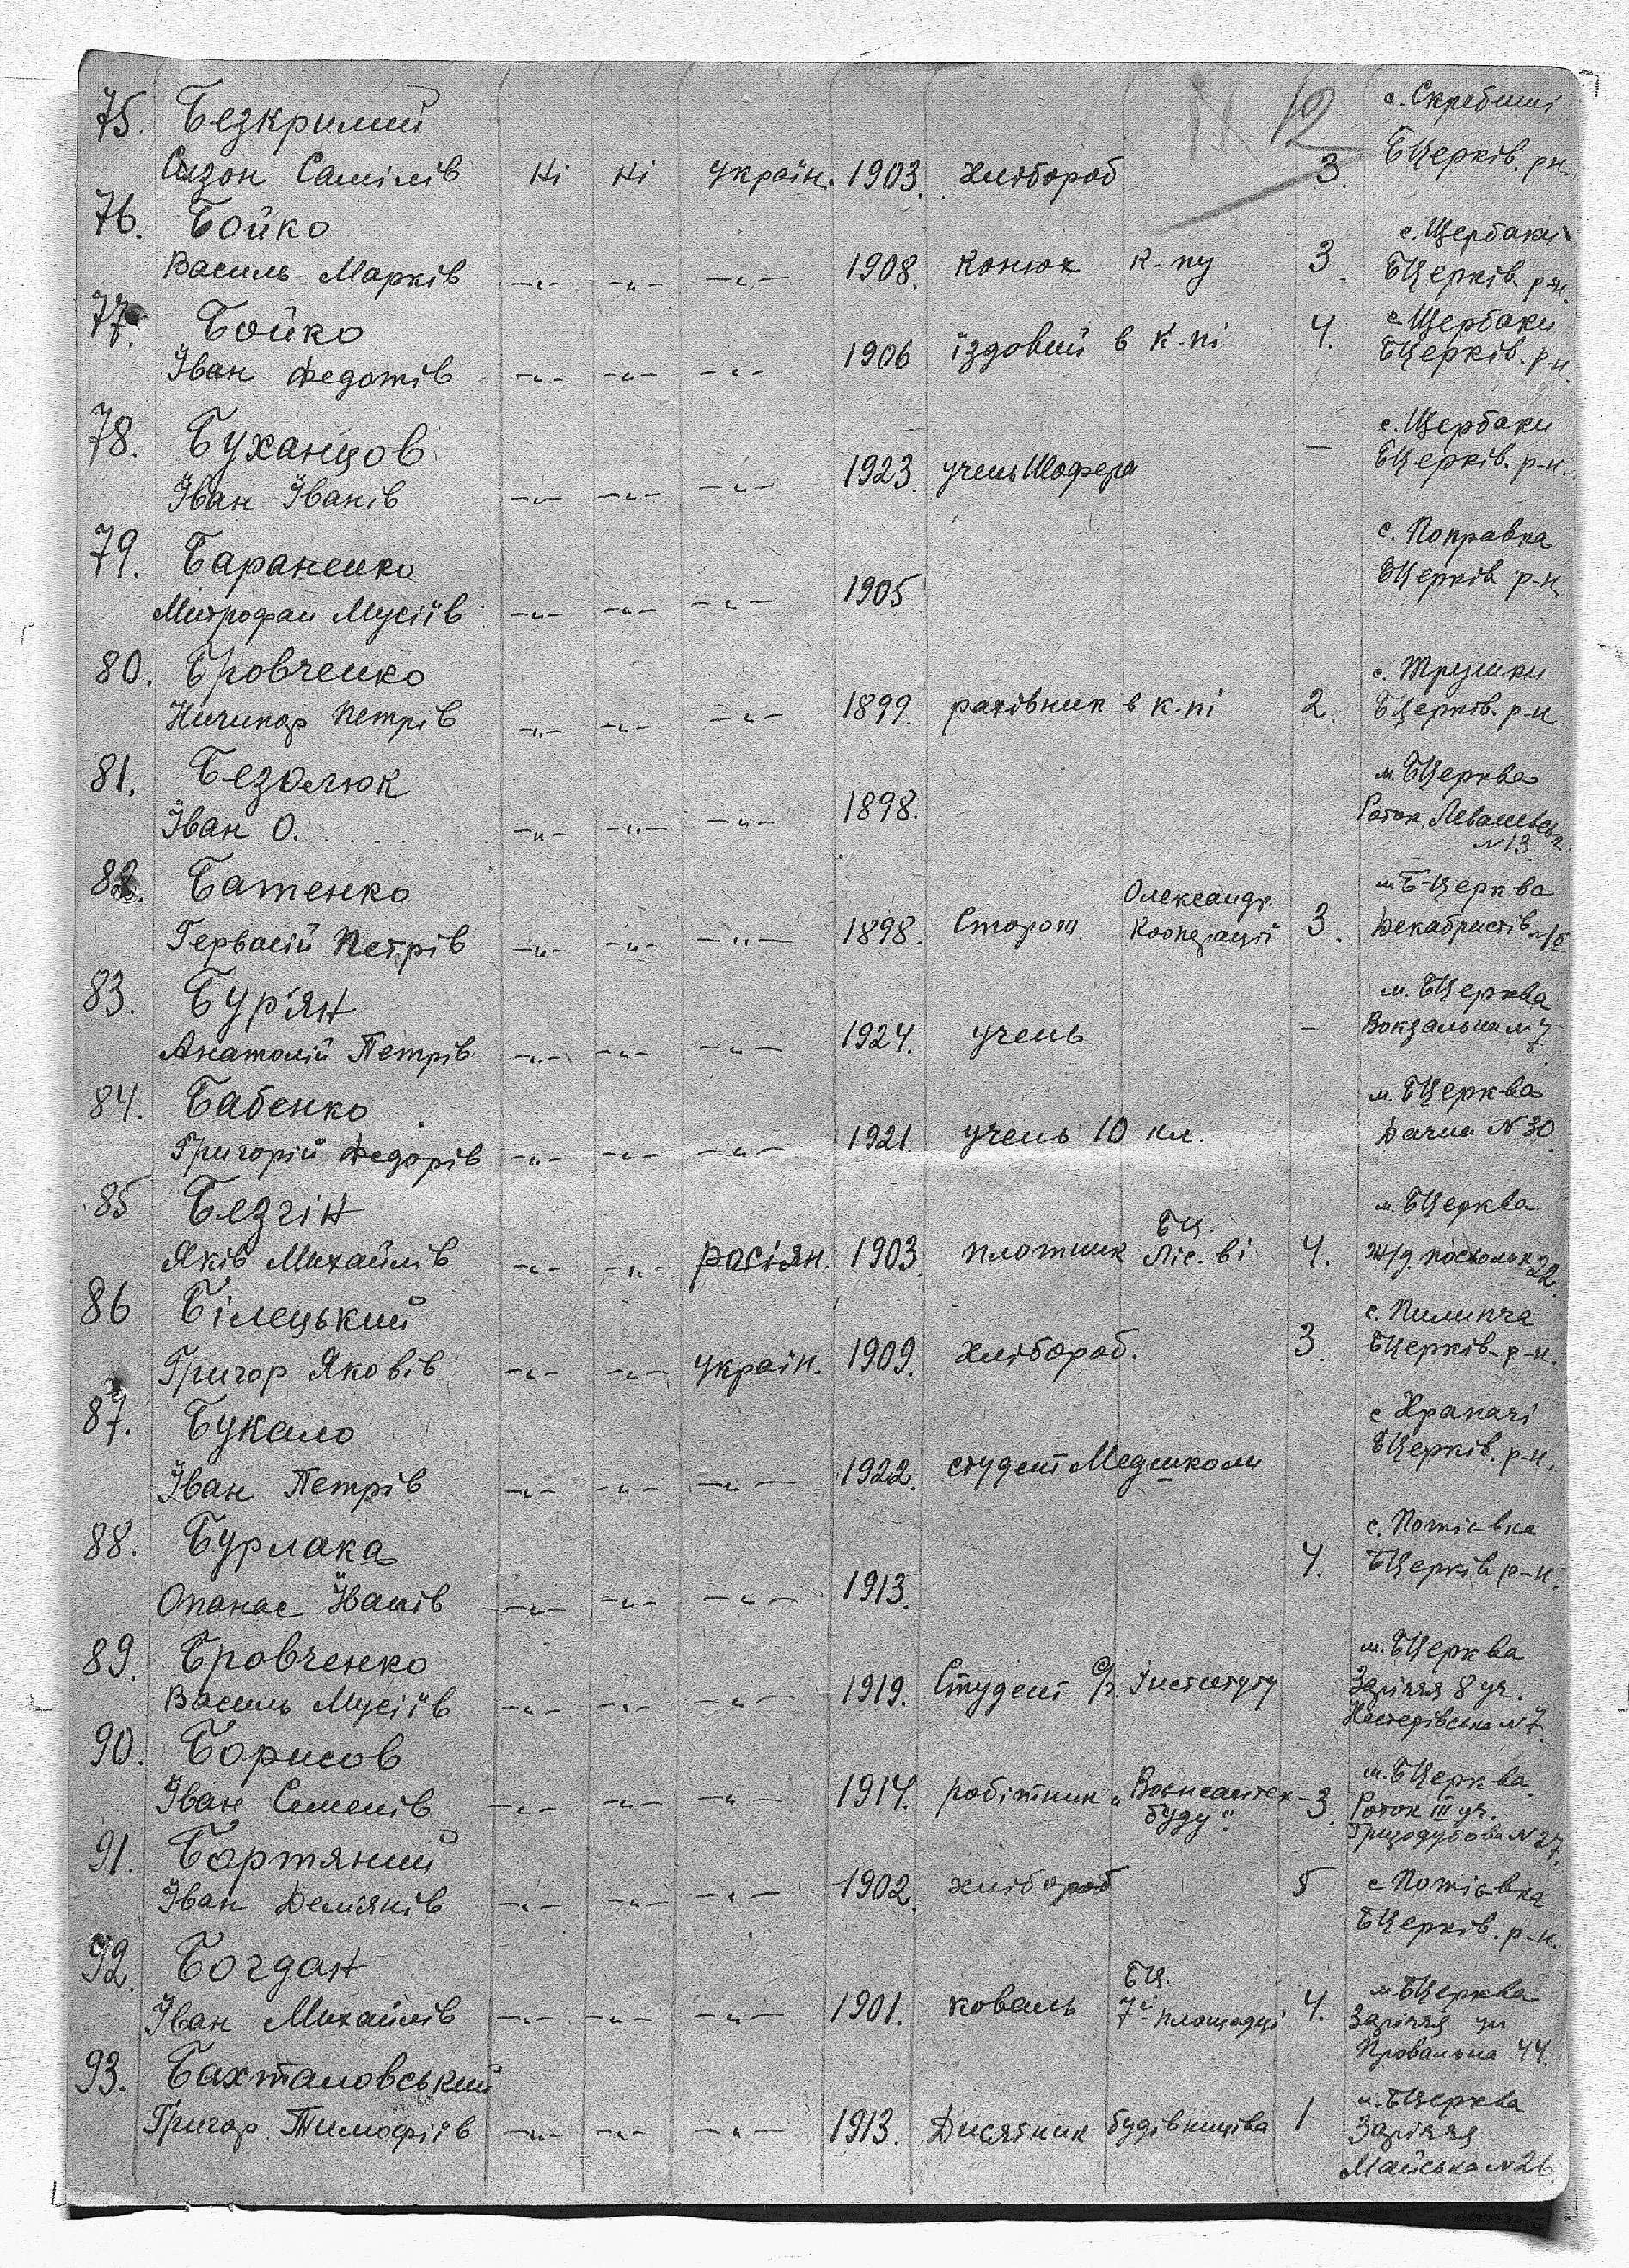 12
75. Безкримий с. Скребиші
Сизон Самілів Ні Ні україн. 1903. хлібороб 3. БЦерків. рн.
76. Бойко с. Щербаки
Василь Марків -"- -"- -"- 1908. конюх к-пу 3. БЦерків. р-н.
77. Бойко с Щербаки
Іван Федотів -"- -"- -"- 1906 їздовий в к-пі 4. БЦерків. р-н.
78. Буханцов с. Щербаки
Іван Іванів -"- -"- -"- 1923. учень Шофера - БЦерків. р-н.
79. Бараненко с. Поправка
Митрофан Мусіїв -"- -"- -"- 1905 БЦерків р-н
80. Бровченко с. Трушки
Ничипор Петрів -"- -"- -"- 1899. рахівник в к-пі 2. БЦерків. р-н
81. Безолюк м. БЦерква
Іван О. -"- -"- -"- 1898. Роток,
N 13.
82. Батенко м. Б-Церква
Гервасій Петрів -"- -"- -"- 1898. Сторож. Олександр. Кооперації 3. Декабристів
83. Бур'ян м. БЦерква
Анатолій Петрів -"- -"- -"- 1924. учень - Вокзальна 7
84. Бабенко м. БЦерква
Григорій Федорів -"- -"- -"- 1921. учень 10 кл. Дачна N 30
85 Безгін м. БЦерква
Яків Михайлів -"- -"- росіян. 1903. плотник БЦ. Ліс-ві 4. Ж/д. 22.
86 Білецький с. Пилипча
Григор Яковів -"- -"- україн. 1909. хлібороб. 3. БЦерків. р-н.
87. Букало с Храпачі
Іван Петрів -"- -"- -"- 1922. студент Медшколи БЦерків. р-н.
88. Бурлака с. Потіївка
Опанас Іванів -"- -"- -"- 1913. 4. БЦерків р-н.
89. Бровченко м. БЦерква
Василь Мусіїв -"- -"- -"- 1919. Студент С/г. Інституту Заріччя 8 уч.
Нестерівська N 7
90. Борисов м. БЦерква
Іван Семенів -"- -"- -"- 1914. робітник „ буду". 3. Роток III уч.
Гризодубова N 27.
91. Бортяний
Іван Дем'янів -"- -"- -"- 1902. хлібороб 5 с Потіївка
БЦерків. р-н.
92. Богдан м БЦерква
Іван Михайлів -"- -"- -"- 1901. коваль БЦ. 7й площадці 4. Заріччя ул
Провальна 44.
93. Бахталовський м. БЦерква
Григор Тимофіїв -"- -"- -"- 1913. Дисятник будівництва 1 Заріччя
Майська N 26